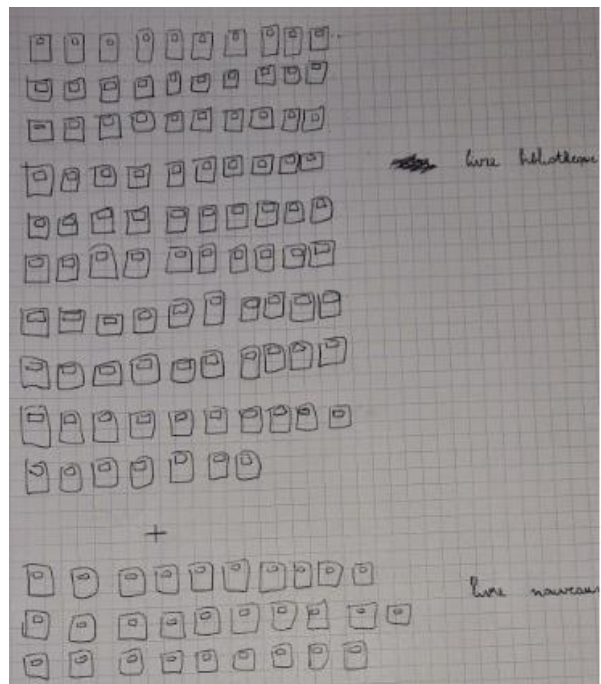 livre bibliotheque
+
livre nouveau